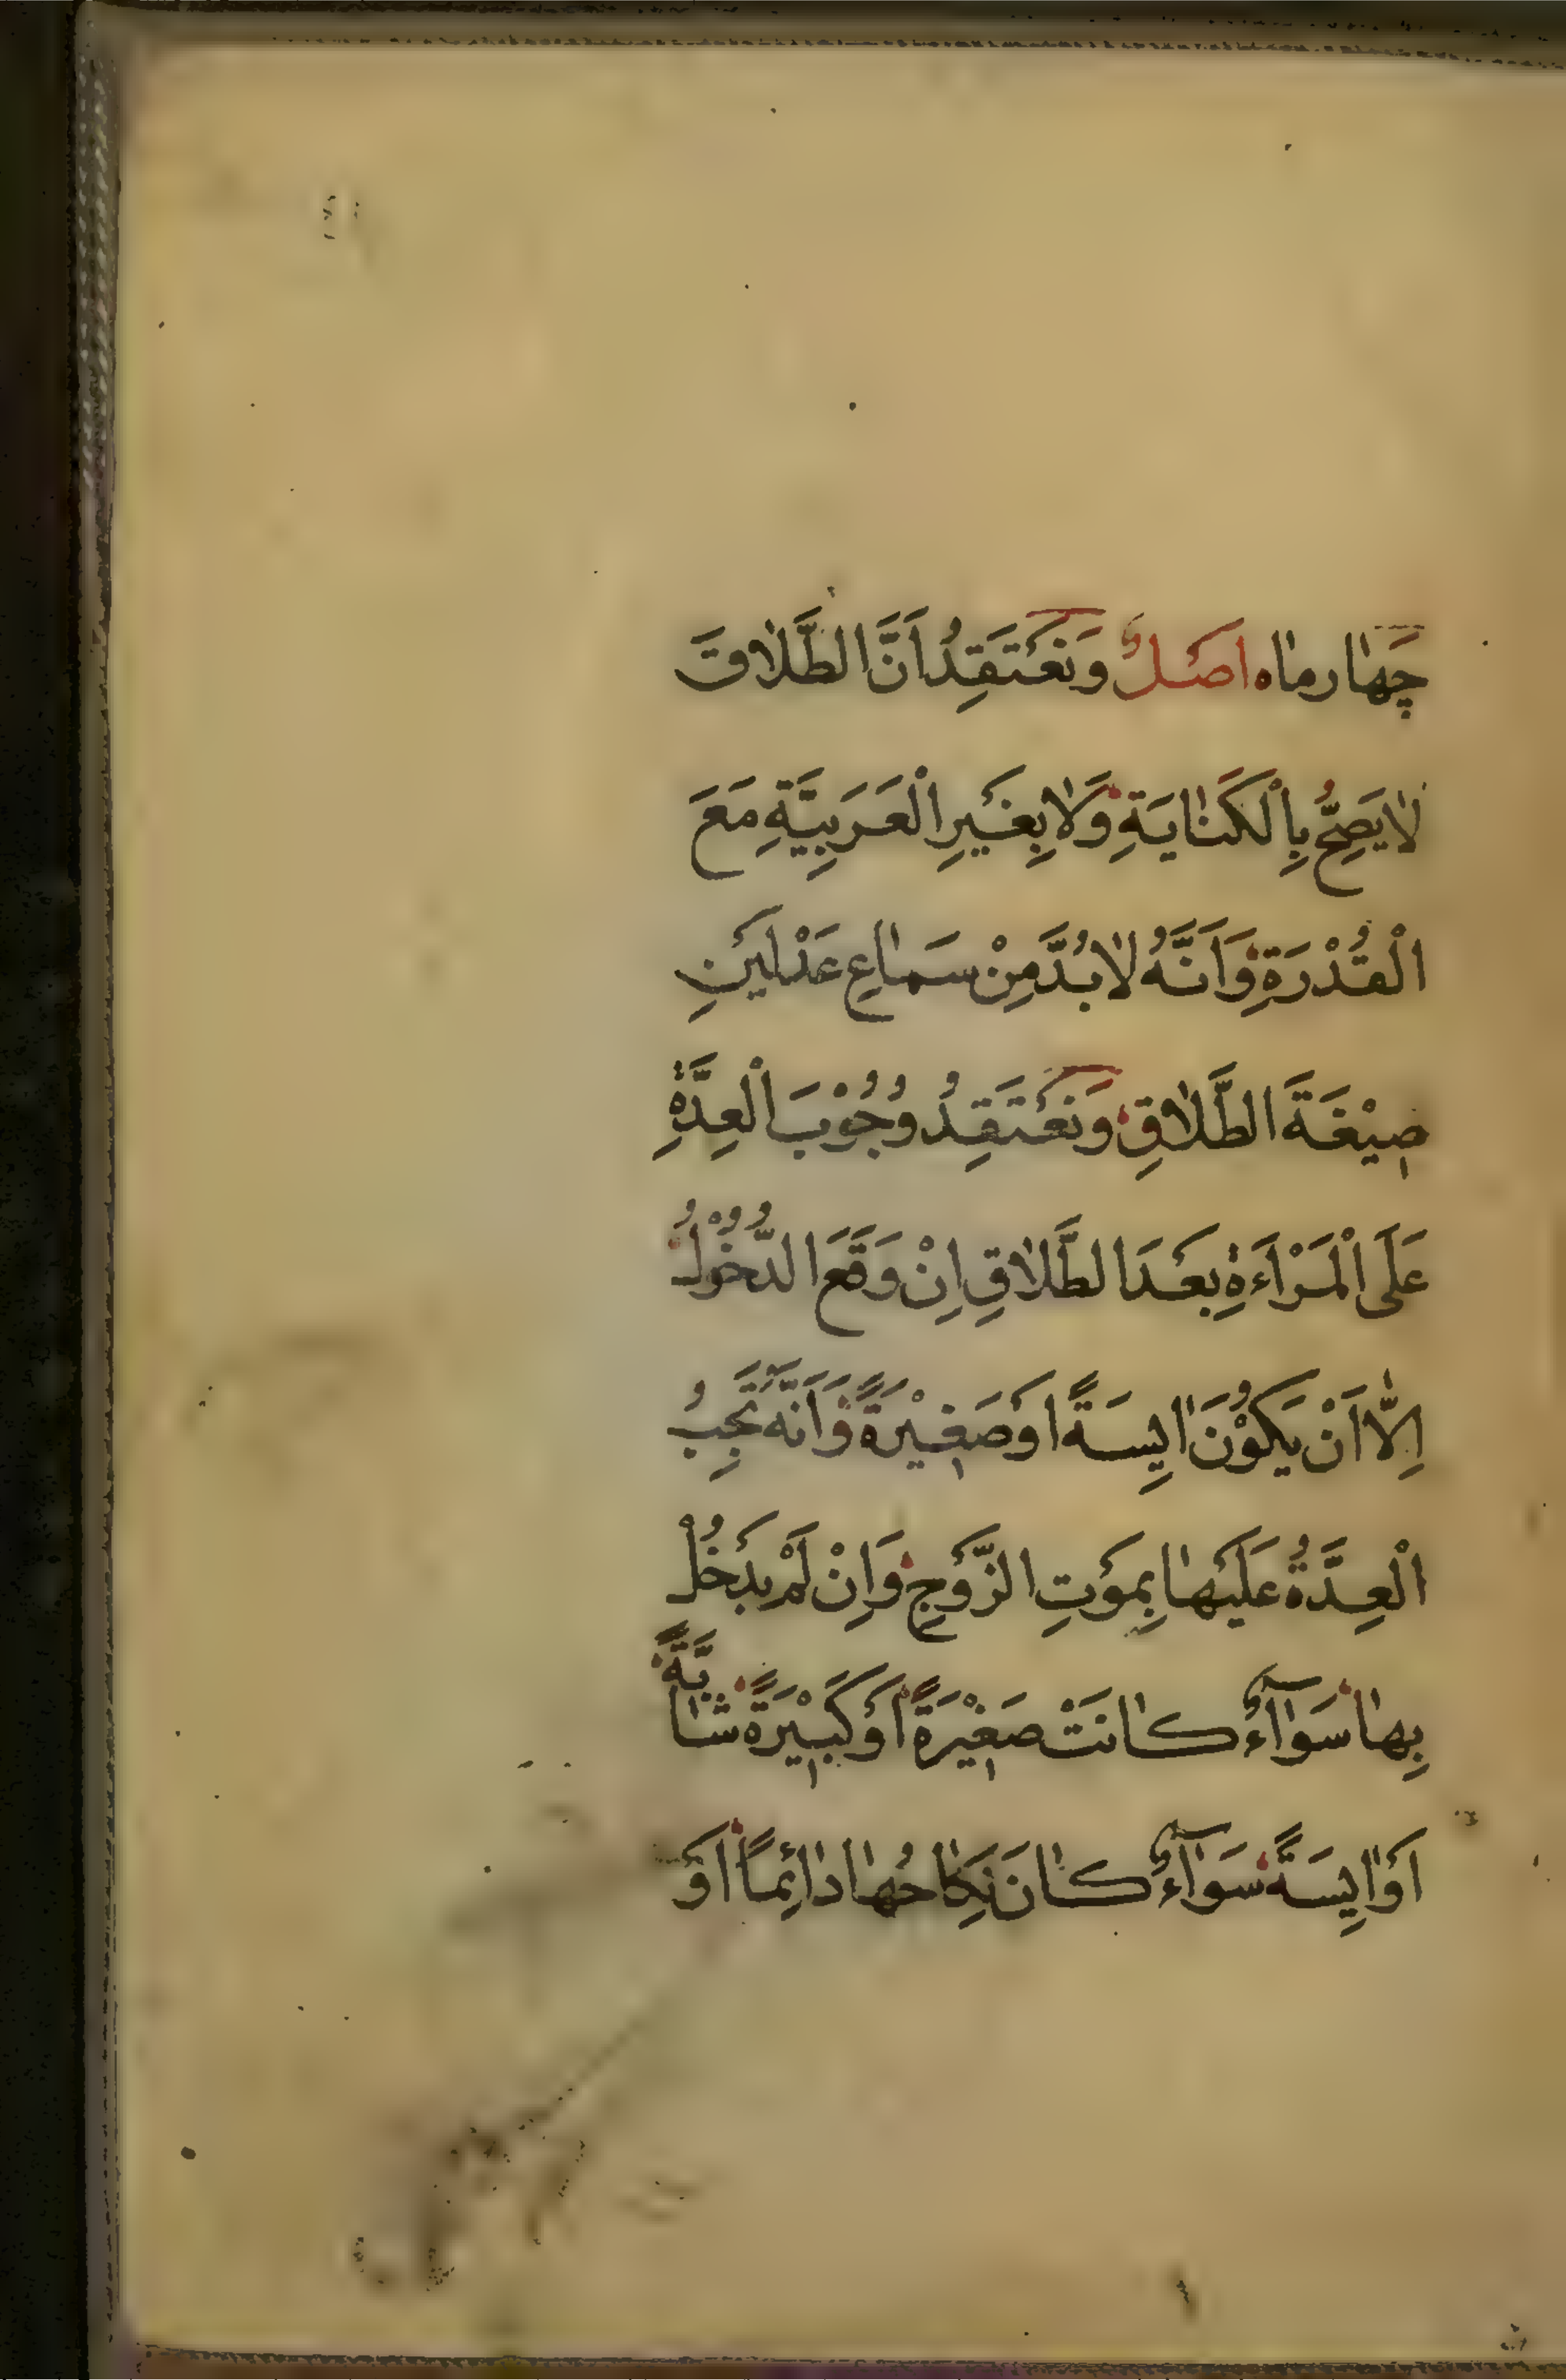 چَهار ماه اصَلٌ وَنَعْتَقِدُ اَنَّ الطَّلاقَ
لا يَصِحُّ بِاْلكَنايَةِ وَلا بِغَيْرِ اْلعَرَبِيَّةِ مَعَ
اْلقُدْرَةِ وَاَنَّهُ لا بُدَّ مِنْ سَماعِ عَدْلَيْنِ
صيْغَةَ الطَّلاقِ وَنَعْتَقِدُ وُجُوْبَ اْلعِدَّةِ
عَلَى اْلمَرْاَءةِ بَعْدَ الطَّلاقِ اِنْ وَقَعَ الدُّخُوْلُ
اِلاّ اَنْ يَكُوْنَ ايِسَةً اَوْ صَغيْرَةً وَاَنَّهُ تَجِبُ
اْلعِدَّةُ عَلَيْها بِمَوْتِ الزَّوْجِ وَاِنْ لَمْ يَدْخُلْ
بِها سَوَآءٌ كانَتْ صَغيْرَةً اَوْ كَبيْرَةً شابَّةً
اَوْ ايِسَةً سَوَآءٌ كانَ نِكاحُها دائِماً اَوْ